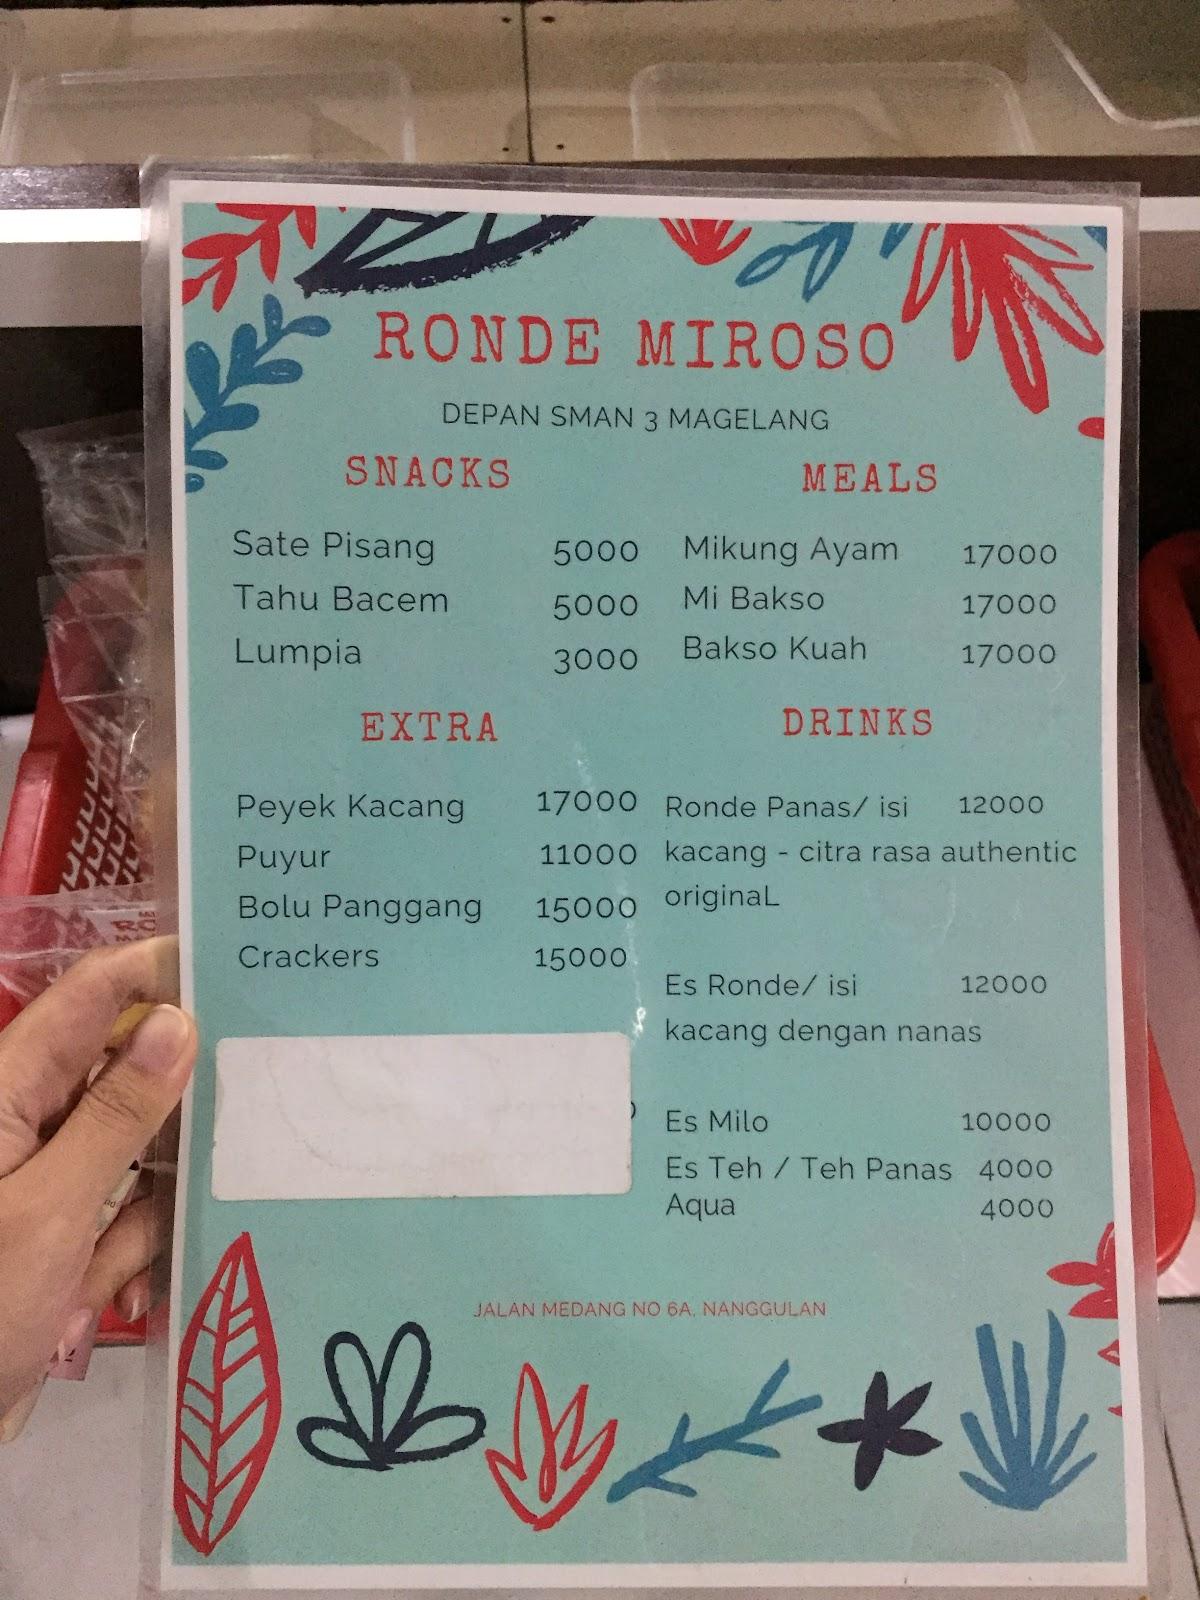 RONDE MIROSO
DEPAN SMAN 3 MAGELANG
SNACKS
Sate Pisang 5000
Tahu Bacem 5000
Lumpia 3000
MEALS
Mikung Ayam 17000
Mi Bakso 17000
Bakso Kuah 17000
EXTRA
Peyek Kacang 17000
Puyur 11000
Bolu Panggang 15000
Crackers 15000
DRINKS
Ronde Panas/ isi 12000
kacang - citra rasa authentic
originaL
Es Ronde/ isi 12000
kacang dengan nanas
Es Milo 10000
Es Teh / Teh Panas 4000
Aqua 4000
JALAN MEDANG NO 6A, NANGGULAN